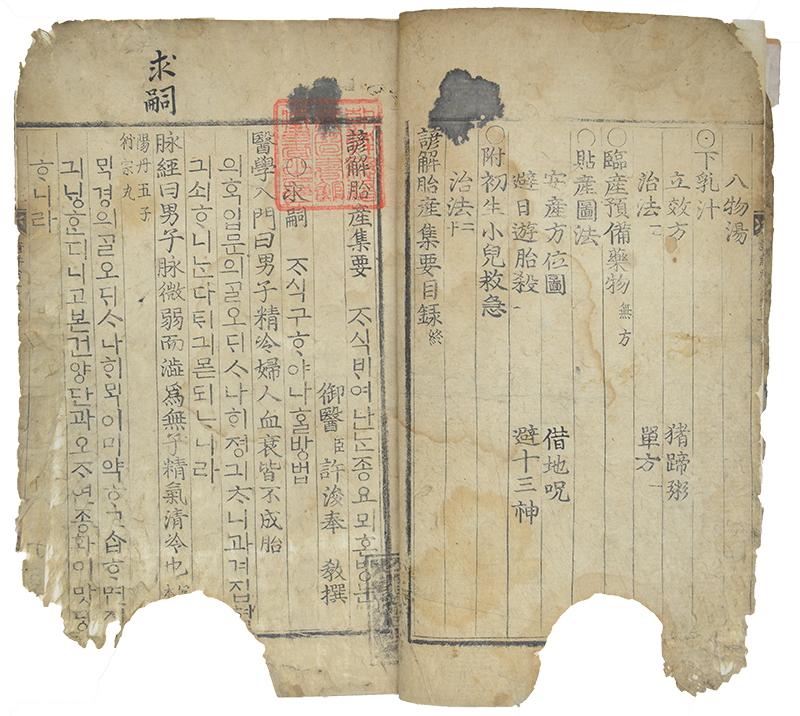 八物湯
⊙下乳汁
立效方 猪蹄粥
治法 單方一
○臨産預備藥物 無方
○貼産圖法
安産方位圖 借地呪
避日遊胎殺一 避十三神
○附初生小兒救急
治法二十
諺解胎産集要目録終
求嗣
諺解胎産集要 ᄌᆞ식ᄇᆡ여난ᄂᆞᆫ종요뫼혼방문
御醫臣許浚奉 敎撰
○求嗣 ᄌᆞ식구ᄒᆞ야나홀방법
醫學入門曰男子精冷婦人血衰皆不成胎
의ᄒᆞᆨ입문의ᄀᆞᆯ오ᄃᆡᄉᆞ나ᄒᆡ졍긔ᄎᆞ니과겨집혈
긔쇠ᄒᆞ니ᄂᆞᆫ다ᄐᆡ긔몯되ᄂᆞ니라
脉經曰男子脉微弱而澁爲無子精氣清冷也
陽丹五子
衍宗丸
ᄆᆡᆨ경의ᄀᆞᆯ오ᄃᆡᄉᆞ나ᄒᆡᄆᆡᆨ이미약ᄒᆞ고ᄉᆞᆸᄒᆞ면
긔닝ᄒᆞᆫ디니고본건양단과오ᄌᆞ연종환이맛당
ᄒᆞ니라